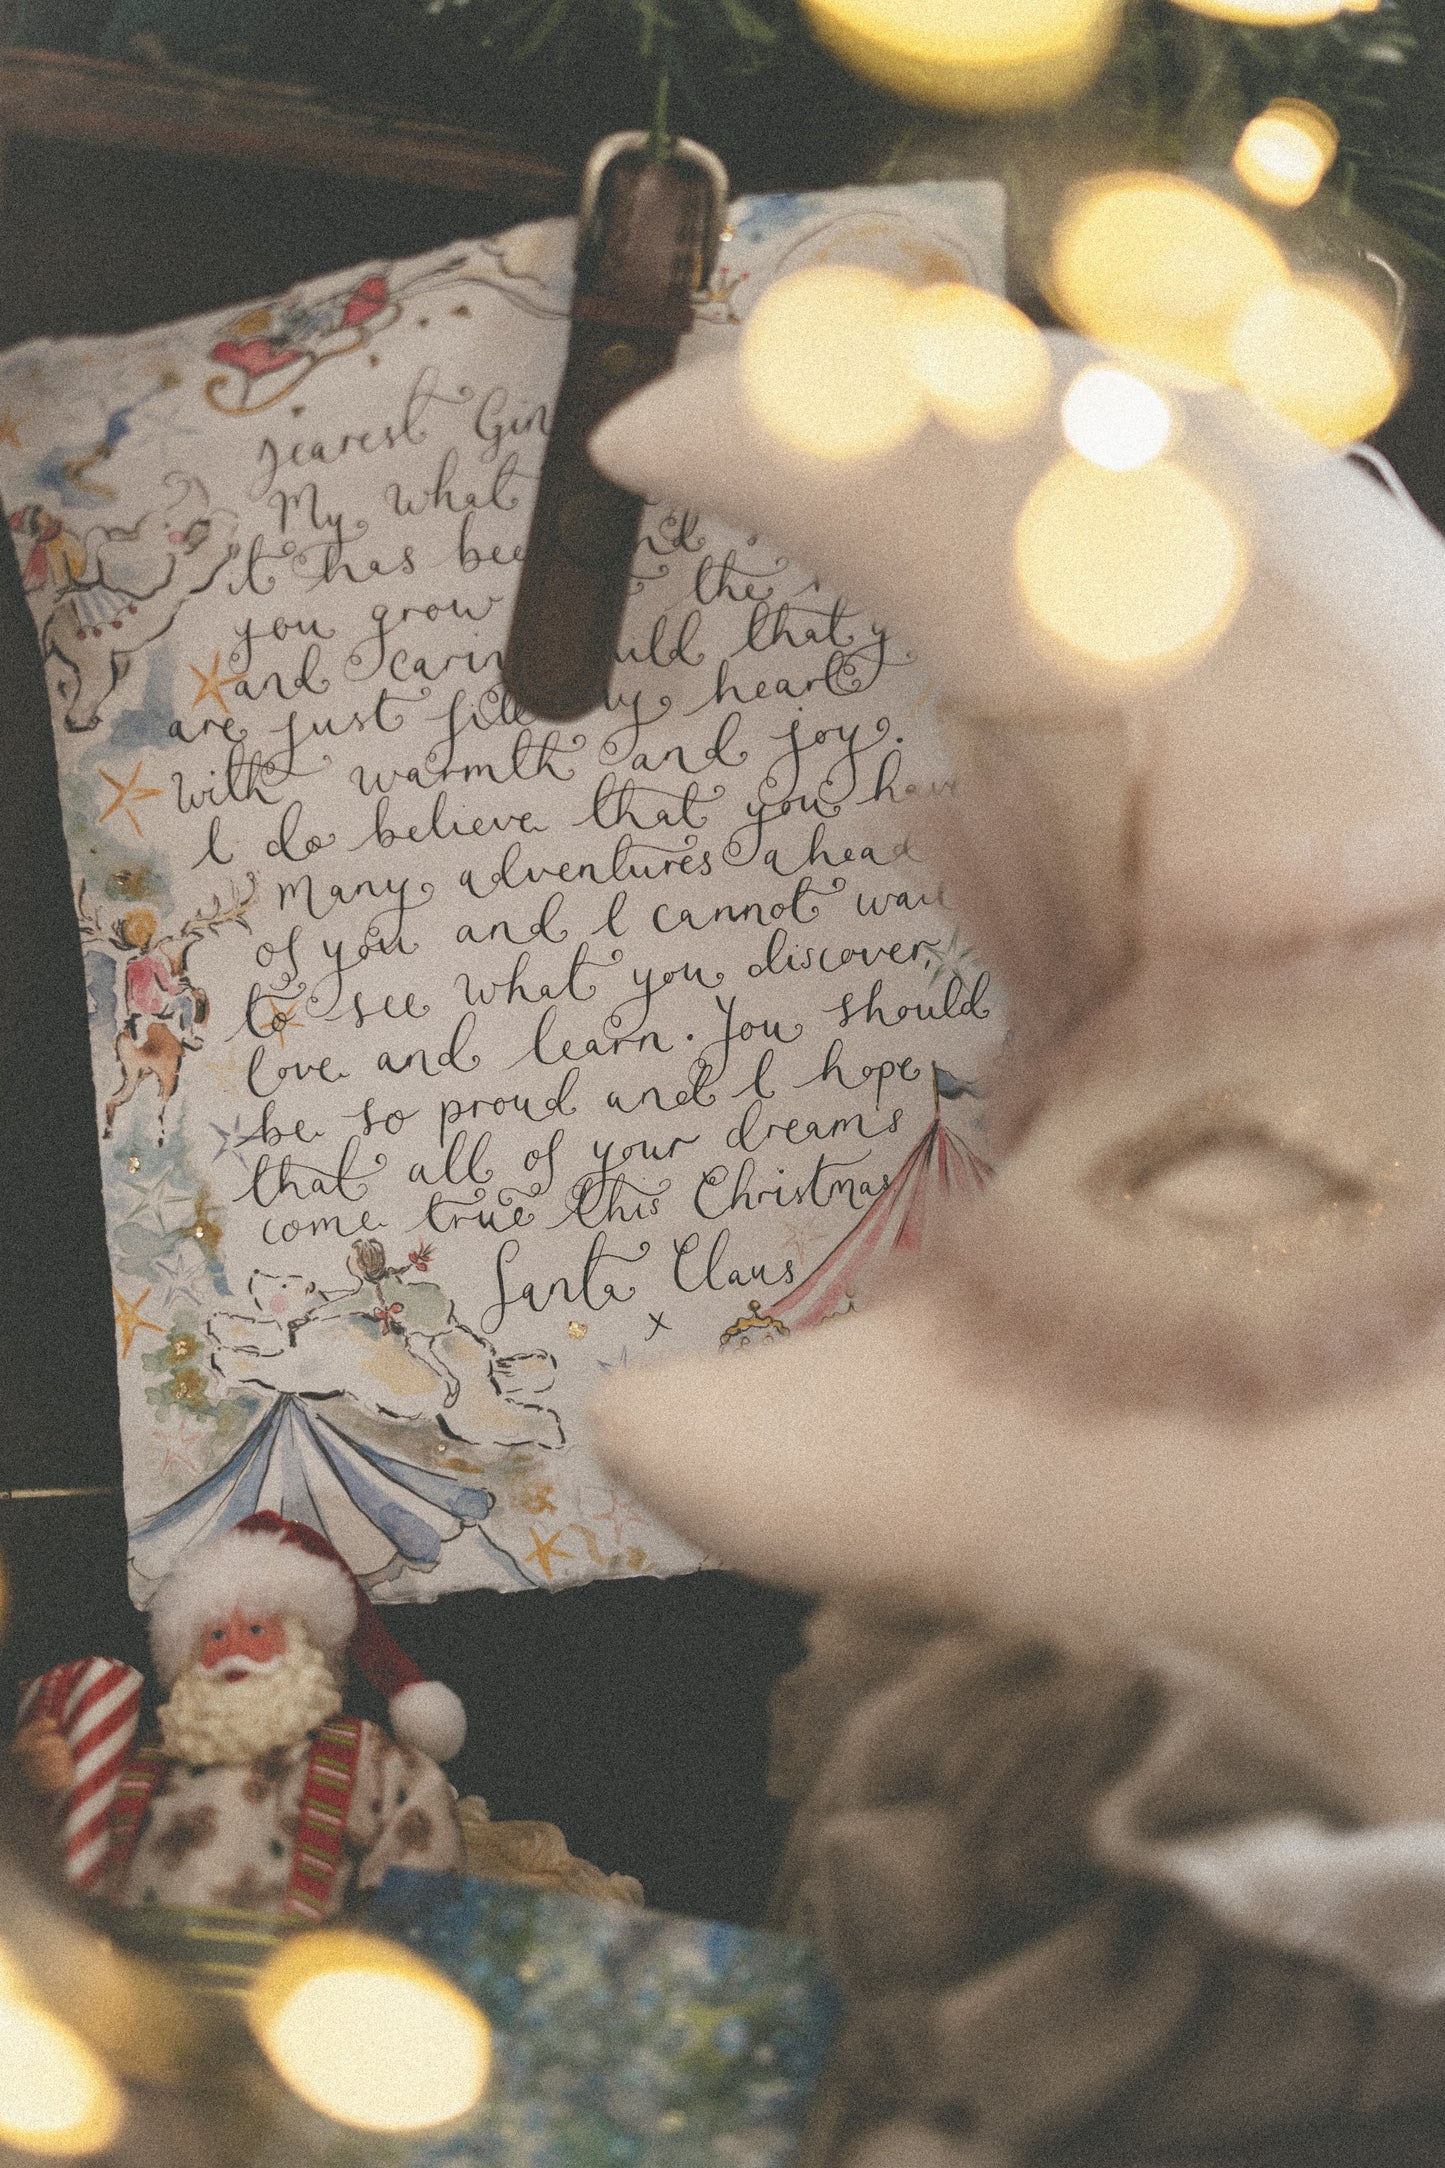 Dearest Gin
My what
it has bee nd
you grow the
and carin uild that y
are just fill my heart
with warmth and joy.
I do believe that you have
many adventures ahead
of you and I cannot wait
to see what you discover,
love and learn. You should
be so proud and I hope
that all of your dreams
come true this Christmas
Santa Claus
x